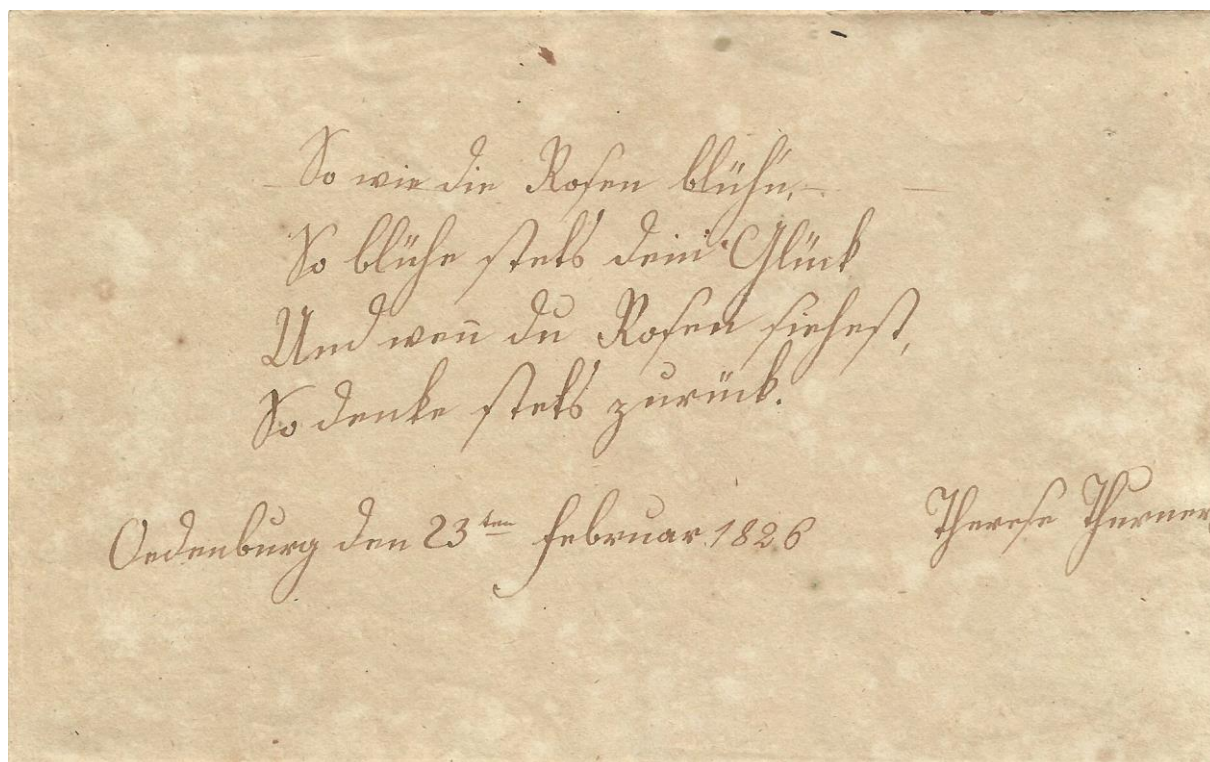 So wie die Rosen blühn,
So blühe stets dein Glück
Und weñ du Rosen siehest,
So denke stets zurück.
Oedenburg den 23ten Februar 1826 Therese Thurner